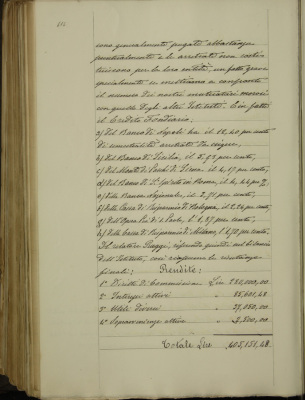 sono generalmente pagate abbastanza
puntualmente e le arretrate non costi-
tuiscono per la loro entità, un fatto grave
specialmente se mettiamo a confronto
il numero dei nostri mutuatari morosi
con quello degli altri Istituti. E in fatti
il Credito Fondiario:
a) Del Banco di Napoli ha il 18,40 per cento
di semestralità arretrate
b) del Banco di Sicilia, il 5,92 per cento,
c) del Monte di Paschi di Siena il 4,17 per cento,
d) del Banco di S. Spirito in Roma, il 4,44 per %
e) della Banca Nazionale, il 2,71 per cento,
f) della Cassa di Risparmio di Bologna, il 2,26 per cento,
g) dell'Opera Pia di S. Paolo, il 1,87 per cento,
h) della Cassa di Risparmio di Milano, il 1,70 per cento.
Il relatore riferendo quindi sul bilancio
dell'Istituto, così riassume le risultanze
finali:
Rendite:
1° Diritti di Commissione Lire
2° Interessi attivi " 85,601,48
3° Utili diversi "
4° Sopravvenienze attive "
Totale Lire 405,151,48